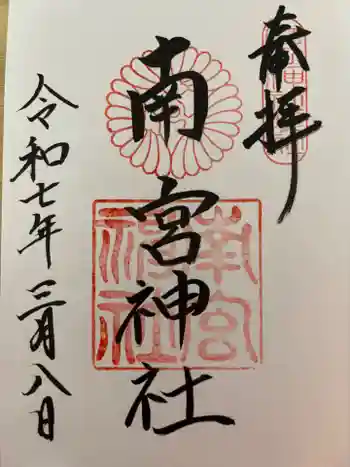 奉拝
南宮神社
南宮
神社
令和七年三月八日